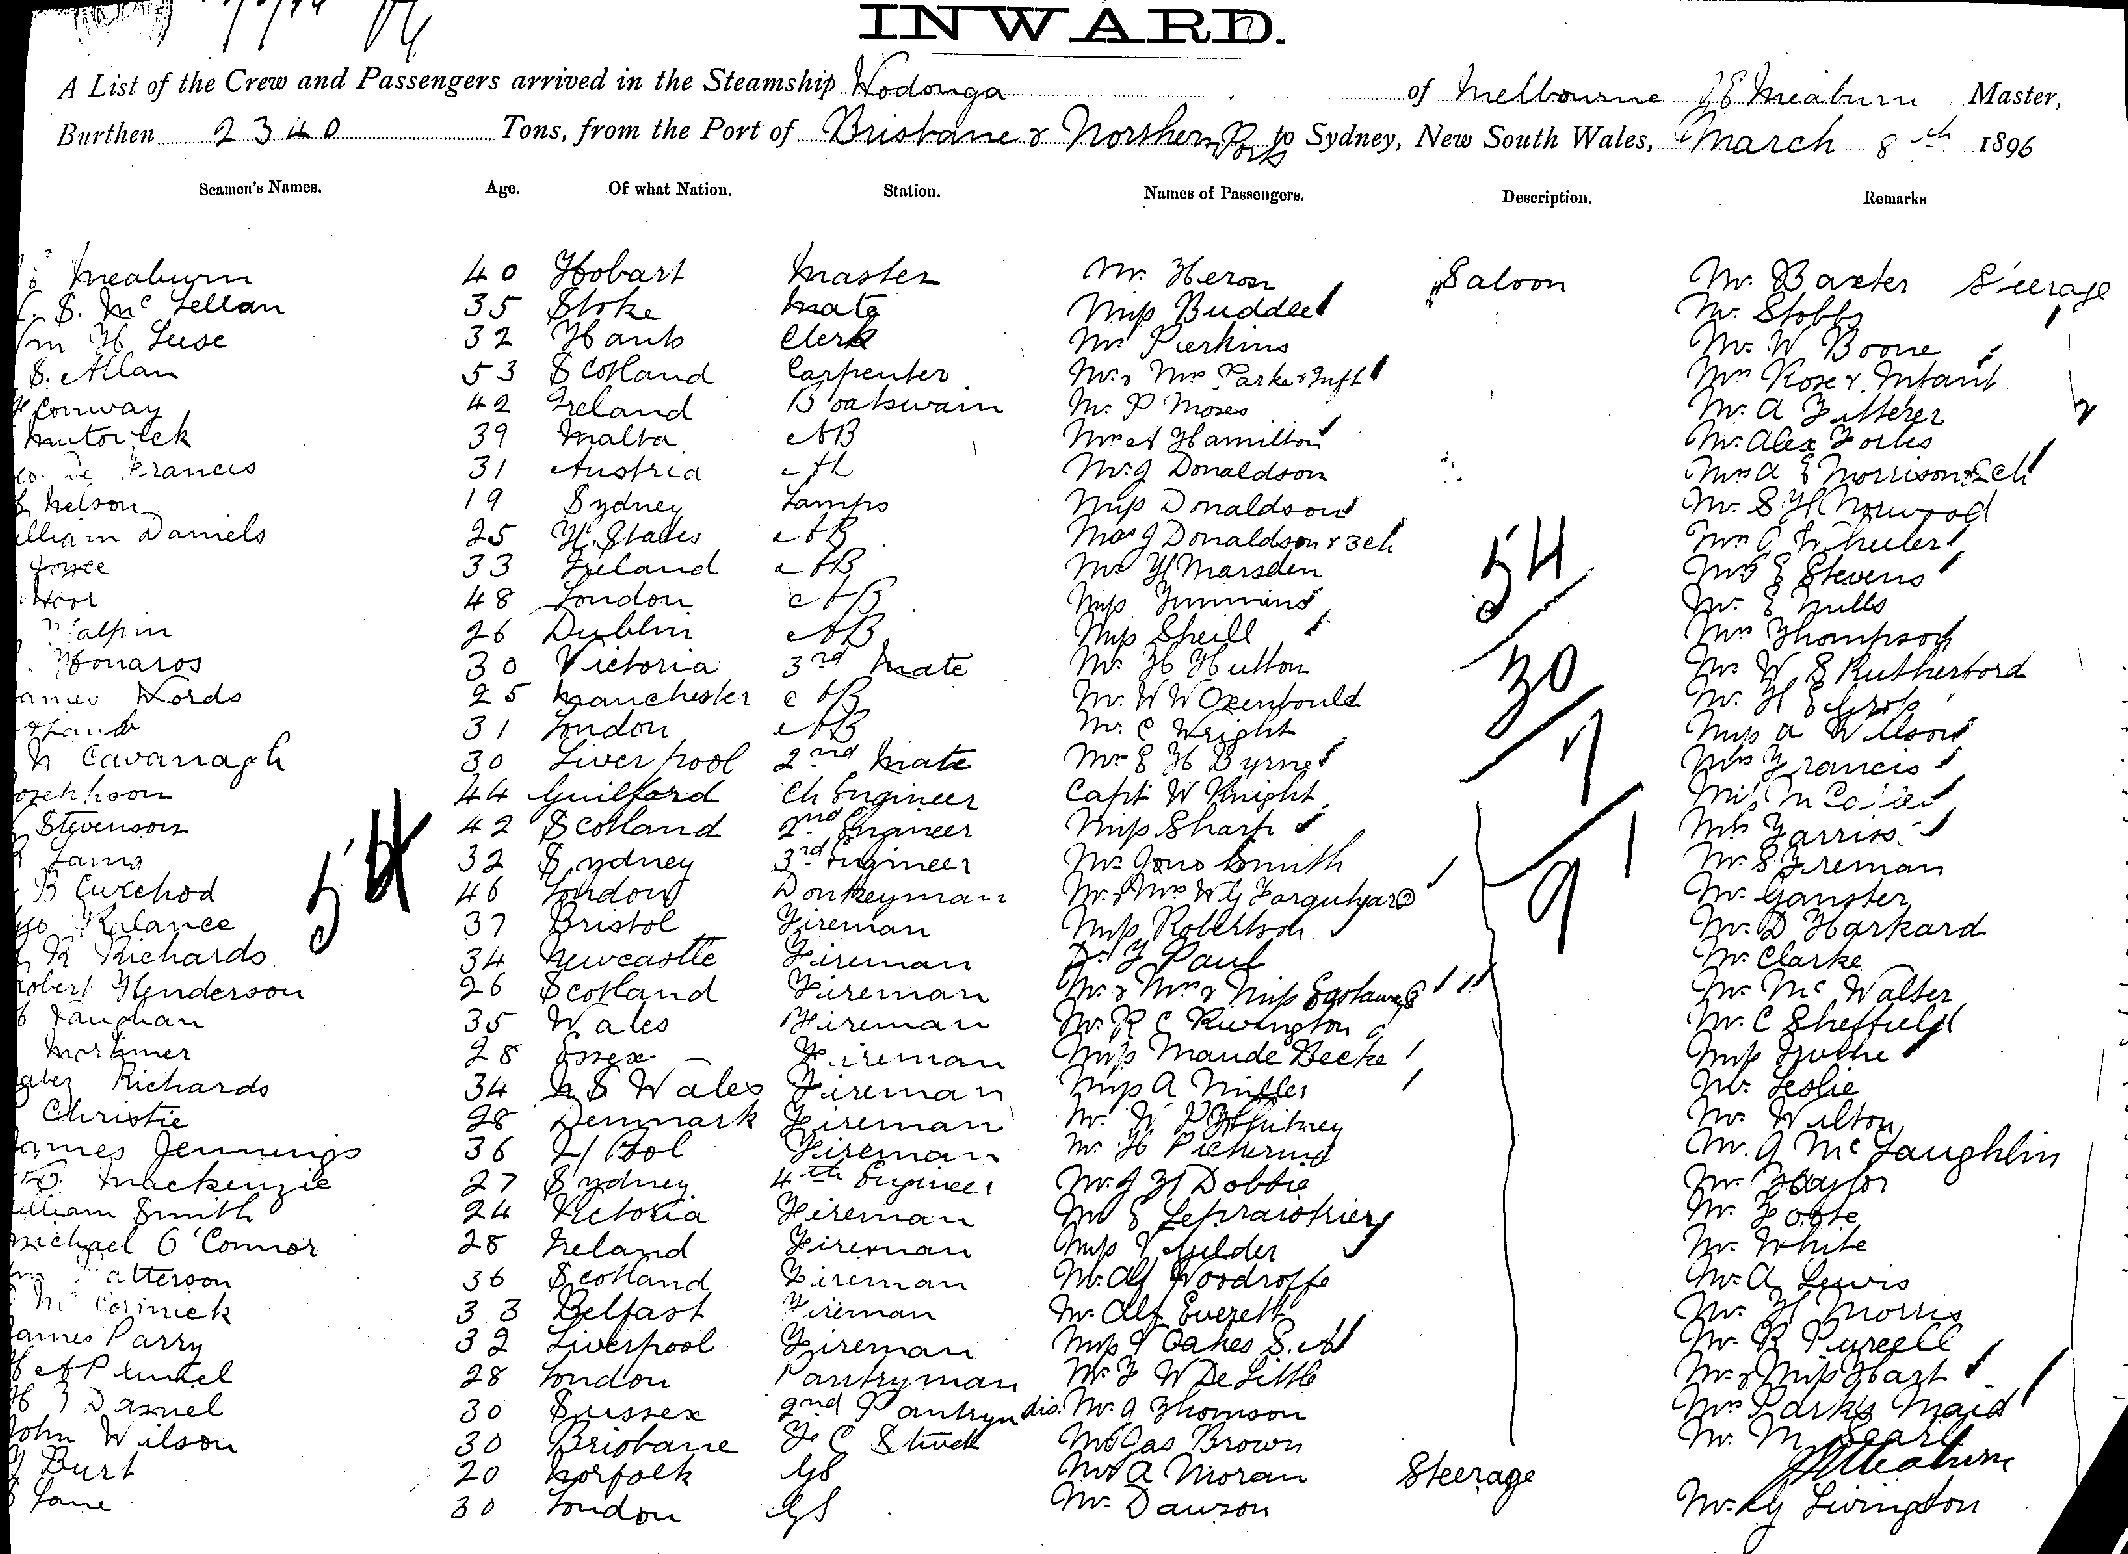 INWARD.
A List of the Crew and Passengers arrived in the Steamship Wodonga of Melbourne Meaburn Master,
Burthen 2340 Tons, from the Port of Brisbane & Northern Ports to Sydney, New South Wales, March 8th 1896
Seamen's Names. Age. Of what Nation. Station. Names of Passengers. Description. Remarks
Meaburn 40 Hobart Master Mr. Heron Saloon Mr. Baxter Steerage
S. Mc Lellan 35 Stoke Mate Miss Buddee Mr. Stobbs
H Luse 32 Hants Clerk Mr Pierkins Mr. W Boone
S. Allan 53 Scotland Carpenter Mr & Mrs Parke & Inft Mrs Rose & Infant
Conway 42 Ireland Boatswain Mr. P Moses Mr. A Fitterer
39 Malta AB Mrs A Hamilton Mr. Alex Forbes
Francis 31 Austria AB Mr. J Donaldson Mrs A E Morrison & 2 ch
Nelson 19 Sydney Lamps Miss Donaldson Mr. S. H. Norwood
William Daniels 25 U. States AB Mrs J Donaldson & 3 ch Mrs Wheeler
Joyce 33 Ireland AB Mr H Marsden Mrs E Stevens
48 London AB Miss Timmins Mr. E Mills
Halpin 26 Dublin AB Miss Sheill Mrs Thompson
Honaros 30 Victoria 3rd Mate Mr. H Hutton Mr. W S Rutherford
James Words 25 Manchester AB Mr. W W Oxenbould Mr. H E
31 London AB Mr. C Wright Miss A Wilson
N Cavanagh 30 Liverpool 2nd Mate Mrs E H Byrne Mrs Francis
44 Guilford Ch Engineer Capt W Knight Miss
Stevenson 42 Scotland 2nd Engineer Miss Sharp Mrs Farriss
Laing 32 Sydney 3rd Engineer Mr. Jno Smith Mr. S Fireman
B Curchod 46 London Donkeyman Mr. & Mrs W G Farquhar Mr. Ganster
Ralance 37 Bristol Fireman Miss Robertson Mr. D Harkard
R Richards 34 Newcastle Fireman Dr. Y Paul Mr. Clarke
Robert Henderson 26 Scotland Fireman Mr. & Mrs & Miss Mr. Mc Walter
Vaughan 35 Wales Fireman Mr. R C Rivington Mr. C Sheffield
Mortimer 28 Essex Fireman Miss Maude Becke Miss
Richards 34 N S Wales Fireman Miss A Miller Mr. Leslie
Christie 28 Denmark Fireman Mr. W P Whitney Mr. Wilton
James Jennings 36 L/Pool Fireman Mr. H Pickering Mr. J McLaughlin
Mackenzie 27 Sydney 4th Engineer Mr. J H Dobbie Mr. Taylor
William Smith 24 Victoria Fireman Mr E Lepraistrier Mr. Foote
Michael O'Connor 28 Ireland Fireman Miss Gilder Mr. White
Patterson 36 Scotland Fireman Mr. Alf Woodroffe Mr. A Lewis
McCormick 33 Belfast Fireman Mr. Alf Everett Mr. H Morris
James Parry 32 Liverpool Fireman Miss Oakes S.A Mr. R Purcell
28 London Pantryman Mr. F W De Little Mr & Miss Hart
Daniel 30 Sussex 2nd Pantrym dis. Mr. J Thomson Mrs Parks Maid
John Wilson 30 Brisbane F C Stwdk Mr Jas Brown Mr. M Searl
Burt 20 Norfolk GS Mr A Moran Steerage Meaburn
Lane 30 London GS Mr. Dawson Mr. Livington
54
54
30
7
91